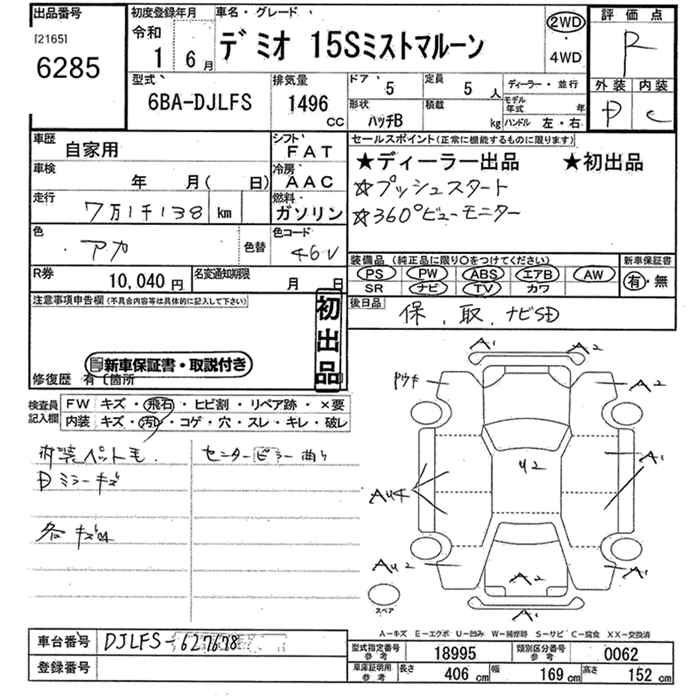 出品番号
[2165]
6285
初度登録年月
令和
1 6月
車名・グレード
デミオ 15Sミストマルーン
2WD
・
4WD
評価点
R
外装 内装
D C
型式
6BA-DJLFS
排気量
1496
CC
ドア
5
定員
5 人
ディーラー・並行
形状
ハッチB
積載
kg
モデル年式 年
ハンドル 左・右
車歴
自家用
シフト
FAT
車検
年 月( 日)
冷房
AAC
走行
7万1千138 km
燃料
ガソリン
色
アカ
色替
色コード
46V
R券
10,040 円
名変通知期限
月 日
セールスポイント(正常に機能するものに限ります)
★ディーラー出品 ★初出品
☆プッシュスタート
☆360°ビューモニター
装備品(純正品に限り〇をつけてください)
新車保証書
PS PW ABS エアB AW
SR ナビ TV カワ
有・無
後日品
保、取、ナビSD
注意事項申告欄(不具合内容等は具体的に記入して下さい)
初出品
新車保証書・取説付き
修復歴 有〔箇所
検査員記入欄
FW キズ・飛石・ヒビ割・リペア跡・×要
内装 キズ・汚レ・コゲ・穴・スレ・キレ・破レ
内装ペット毛.
センターピラー曲り
Dミラーキズ
各キズ凹
A1 A2
A2
U2
A1
AUキ
AU2
A2
A1
A1
スペア
A-キズ E-エクボ U-凹み W-補修跡 S-サビ C-腐食 XX-交換済
車台番号
DJLFS-627678
登録番号
型式指定番号
参考
18995
類別区分番号
参考
0062
車庫証明用
参考
長さ
406 cm
幅
169 cm
高さ
152 cm